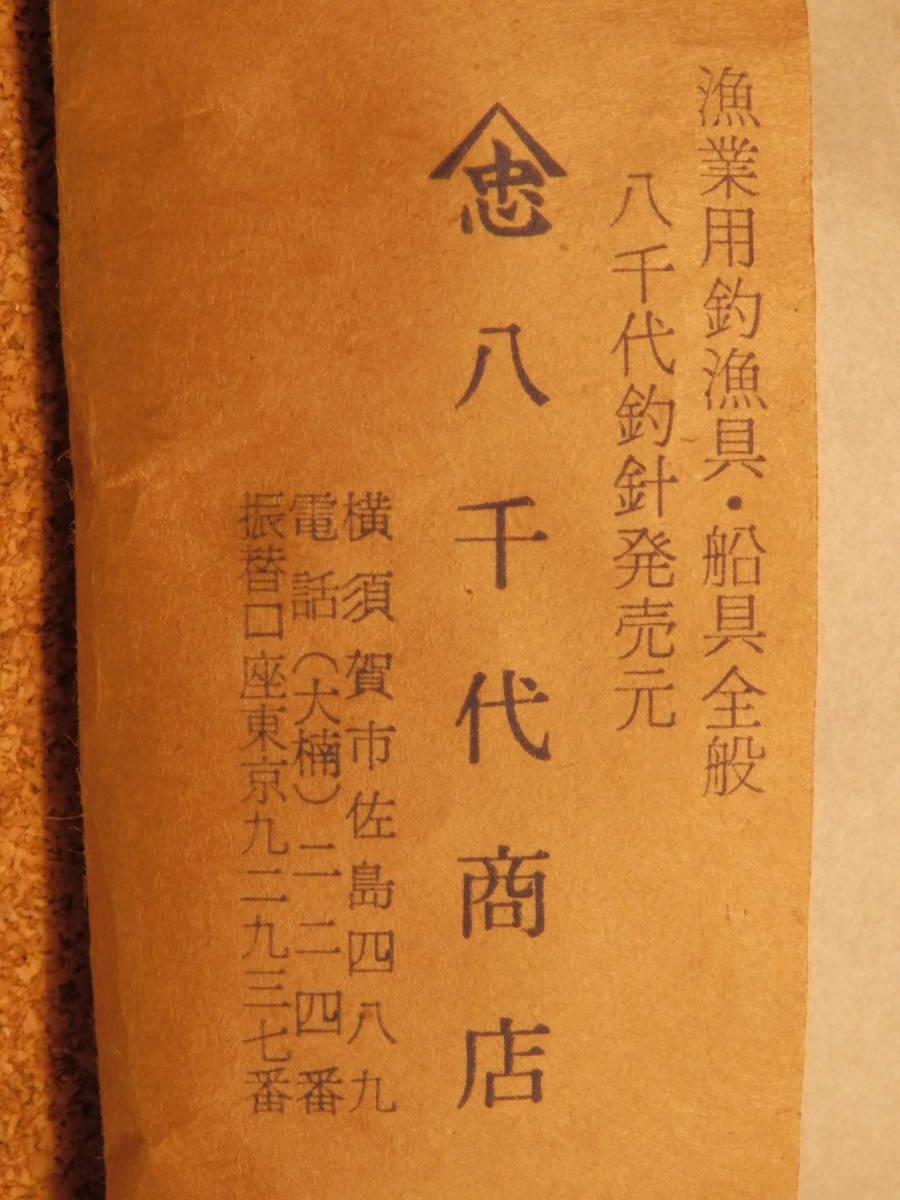 漁業用釣漁具・船具全般
八千代釣針発売元
忠 八千代商店
横須賀市佐島四八九
電話(大楠)二二四番
振替口座東京九二九三七番